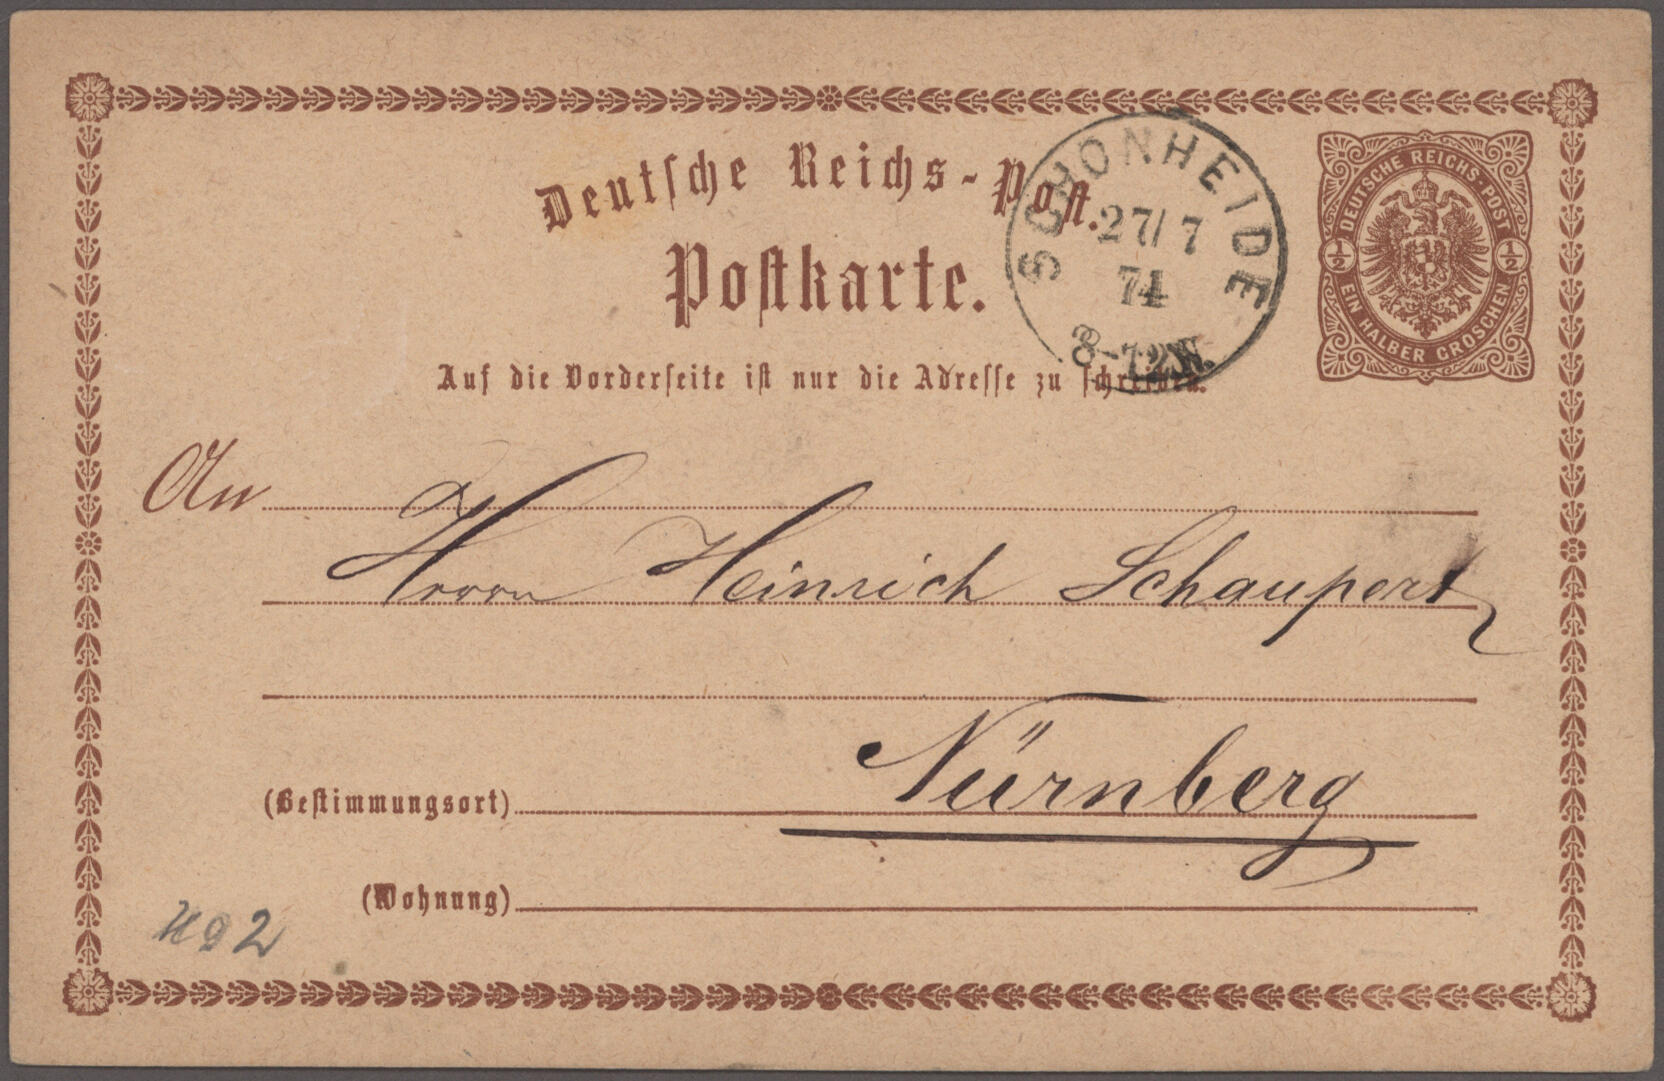 Deutsche Reichs-Post.
Postkarte.
SCHÖNHEIDE
27/7
74
8-12N.
DEUTSCHE REICHS-POST
½ ½
EIN HALBER GROSCHEN
Auf die Vorderseite ist nur die Adresse zu schreiben.
An
Herrn Heinrich Schaupert
Nürnberg
(Bestimmungsort)
(Wohnung)